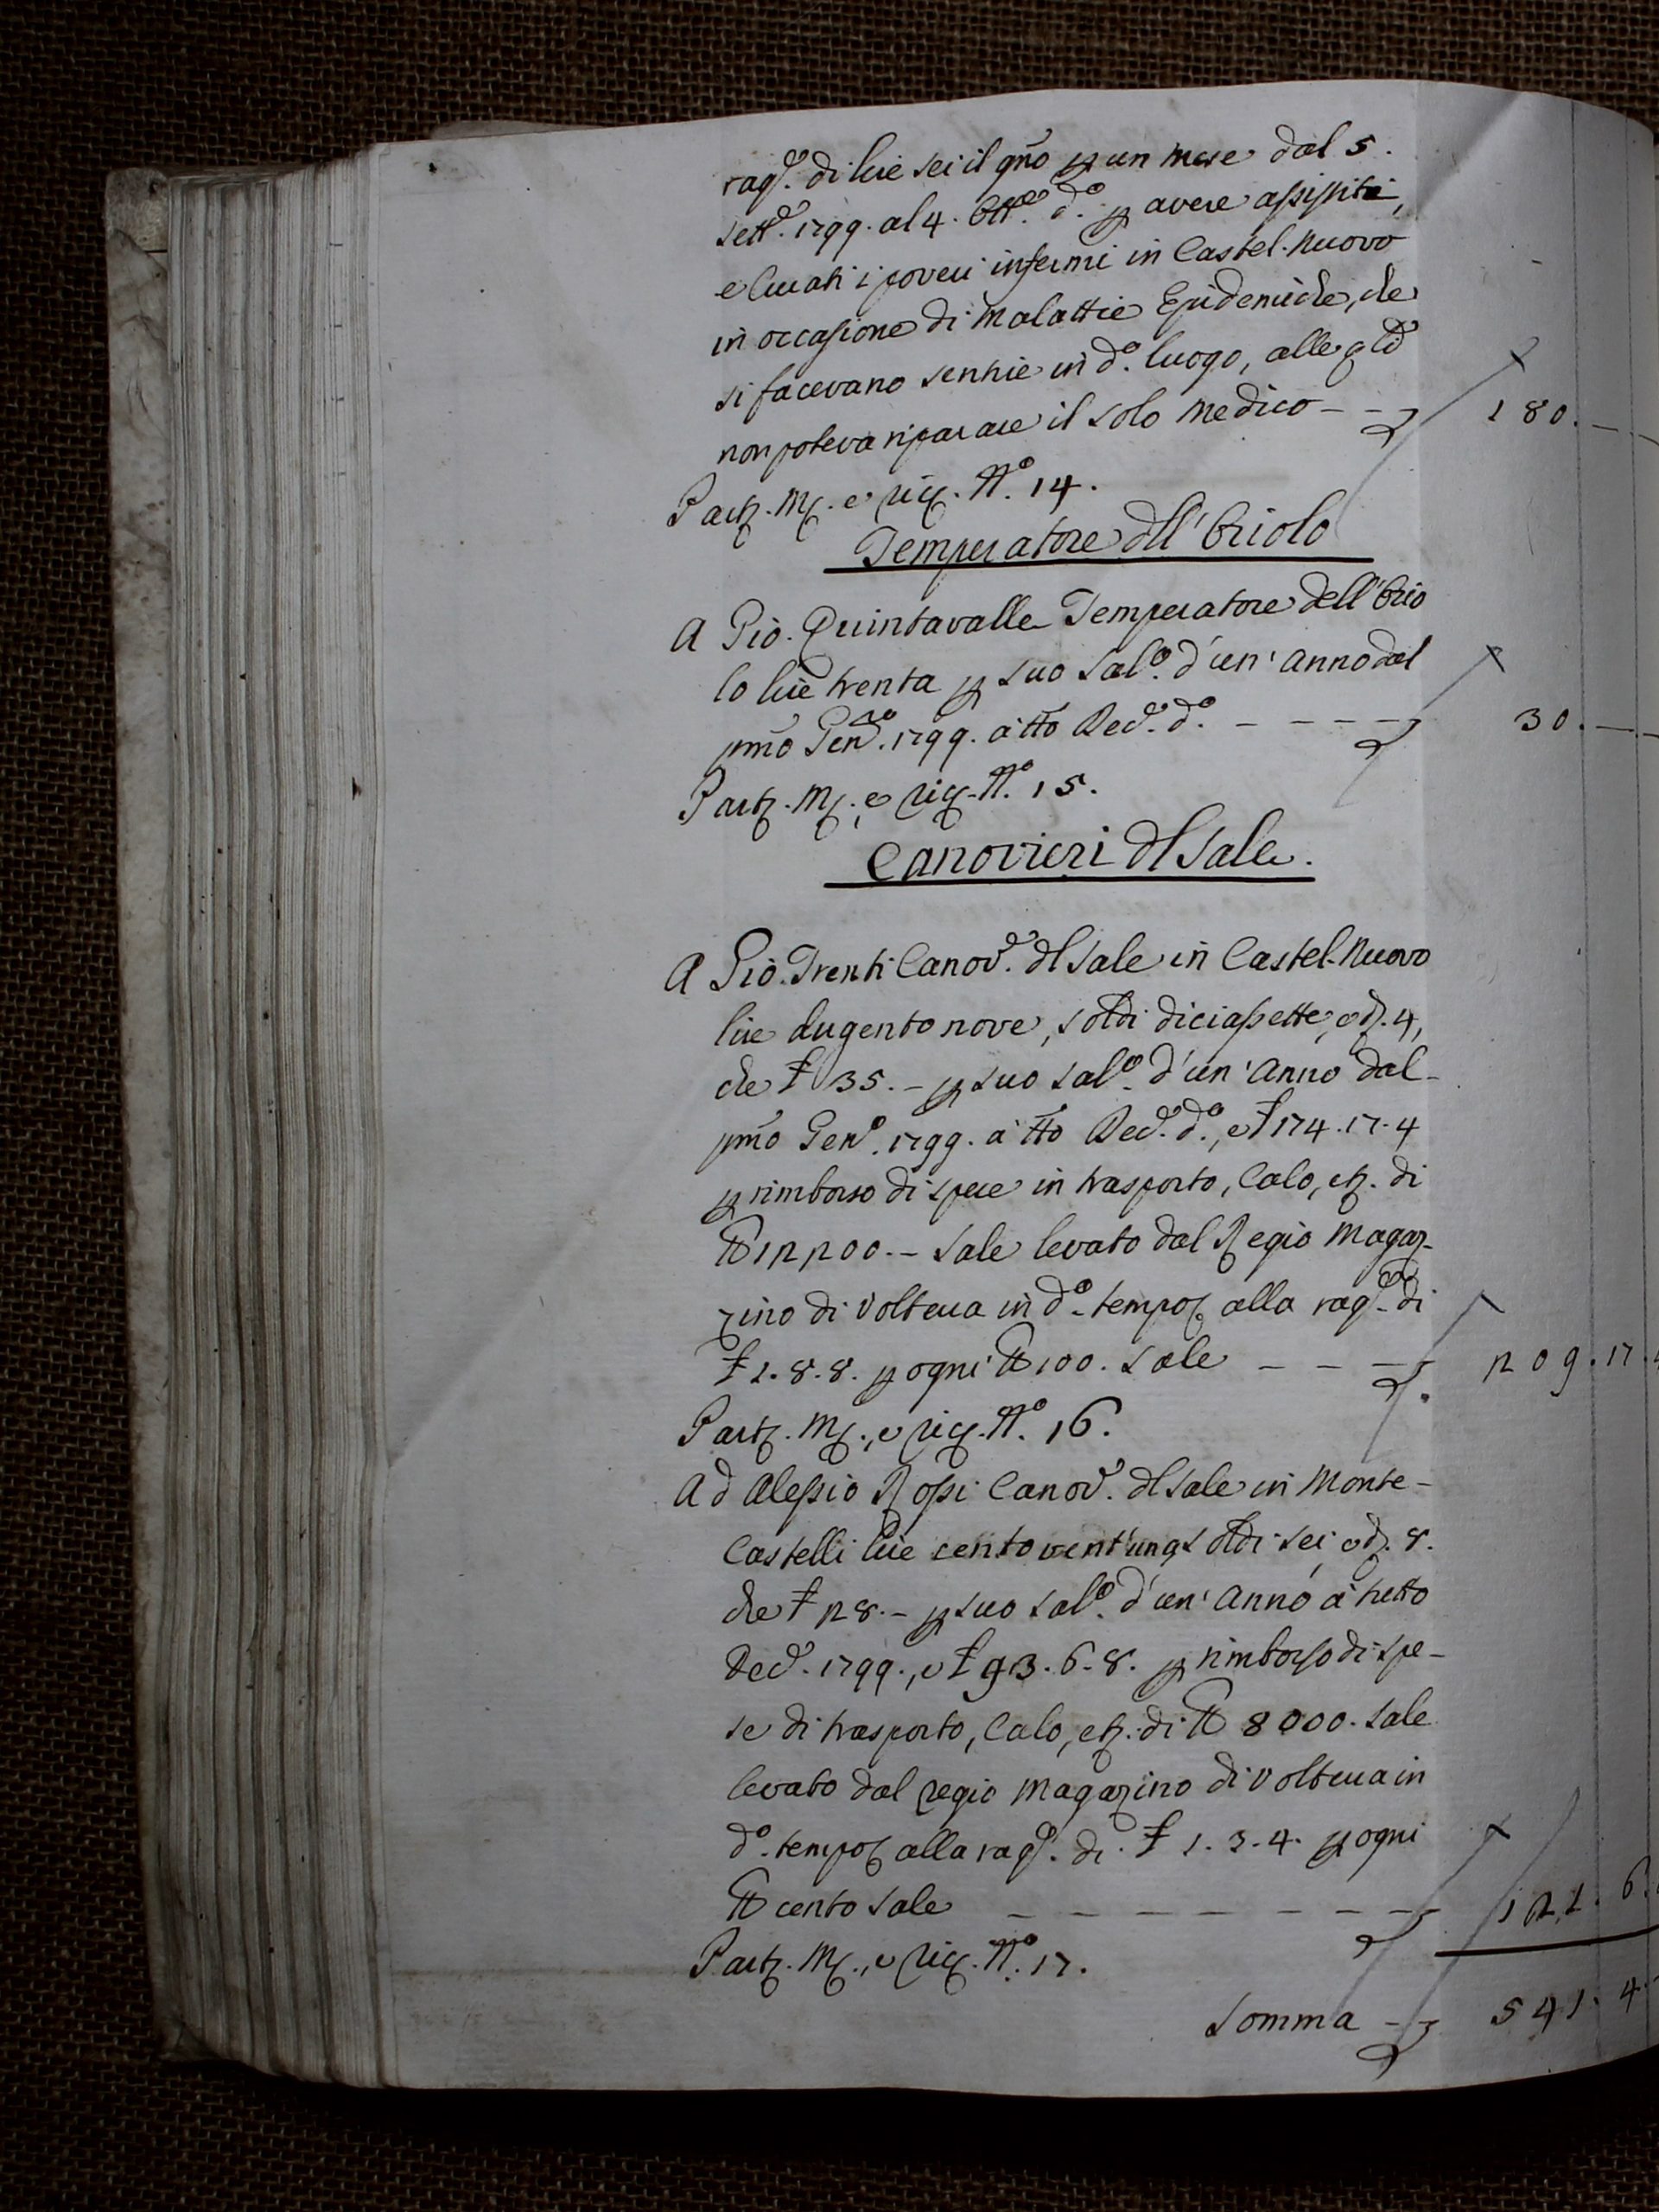 rag.e di lire sei il gno p un mese dal 5.
Sett.e 1799. al 4. Ott.e d.o p avere assistiti,
e curati i poveri infermi in Castel-Nuovo
in occasione di malattie Epidemiche, che
si facevano sentire in d.o luogo, alle qli
non poteva riparare il solo Medico - - 180. —
Partz. Mg. e Ricg. N.o 14.
Temperatore dll' Oriolo
A Gio. Quintavalle Temperatore dell' Orio
lo lire trenta p suo sal.o d'un' anno dal
pmo Gen.o 1799. a tto Dec.e d.o - - - - 30. —
Part. Mg. e Ricg. N.o 15.
Canovieri dl Sale.
A Gio. Trenti Canov.e dl Sale in Castel-Nuovo
lire dugento nove, soldi diciassette, e d. 4,
che £ 35. - p suo sal.o d'un' anno dal
pmo Gen.o 1799. a tto Dec.e d.o, e £ 174. 17. 4
p rimborso di spese in trasporto, Calo, etc. di
℔ 12200. - Sale levato dal Regio Magaz-
zino di Volterra in d.o tempo, alla rag.e di
£ 1. 8. 8. p ogni ℔ 100. Sale - - - 209. 17. 4
Part. Mg., e Ricg. N.o 16.
Ad Alessio Rossi Canov.e dl Sale in Monte-
Castelli lire cento vent'uno, soldi sei, e d. 8.
che £ 28. - p suo sal.o d'un' anno a tutto
Dec.e 1799., e £ 93. 6. 8. p rimborso di spe-
se di trasporto, Calo, etc. di ℔ 8000. Sale
levato dal Regio Magazino di Volterra in
d.o tempo, alla rag.e di £ 1. 3. 4. p ogni
℔ cento Sale - - - - - - - 121. 6.
Part. Mg., e Ricg. N.o 17.
Somma - - 541. 4.